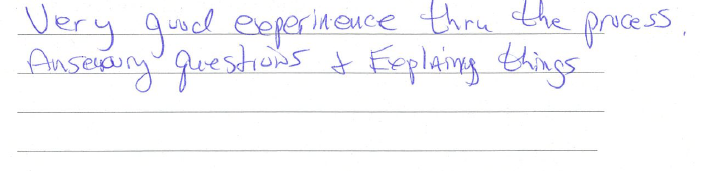 Very good experience thru the process.
Answering questions & Explaining things